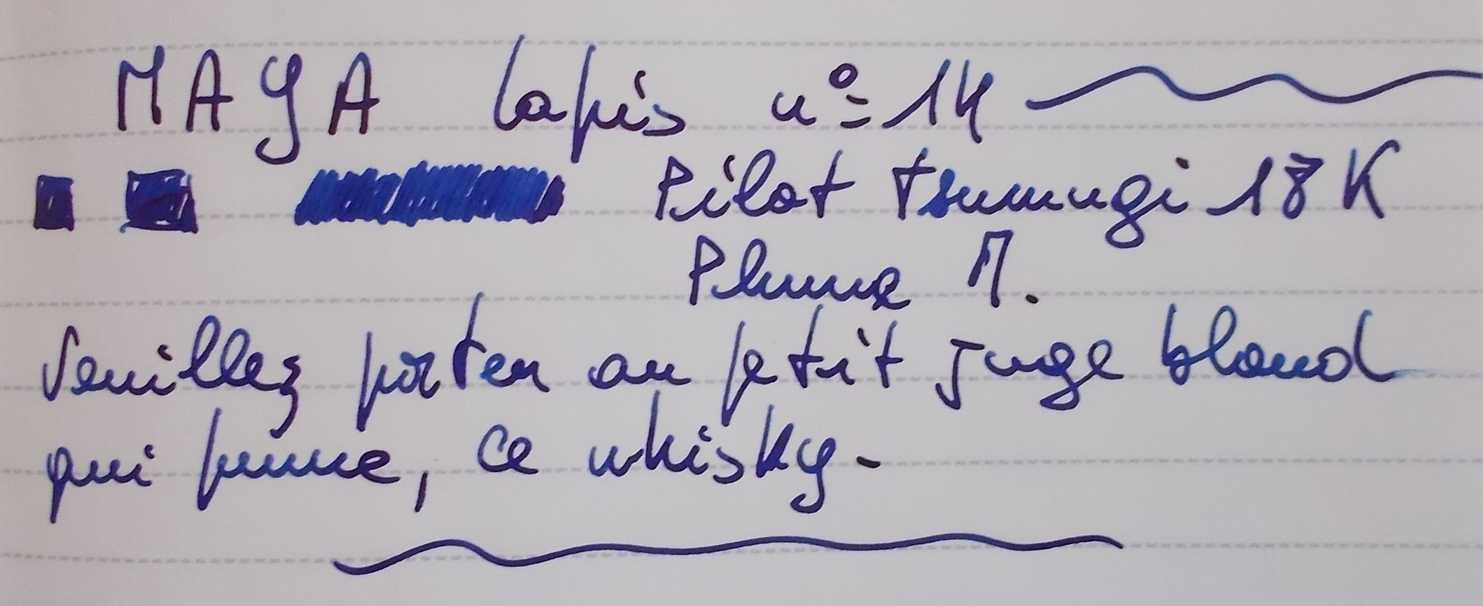 MAYA lapis nº 14
Pilot Tsumugi 18K
Plume M.
Veuillez porter au petit juge blond
qui fume, ce whisky-